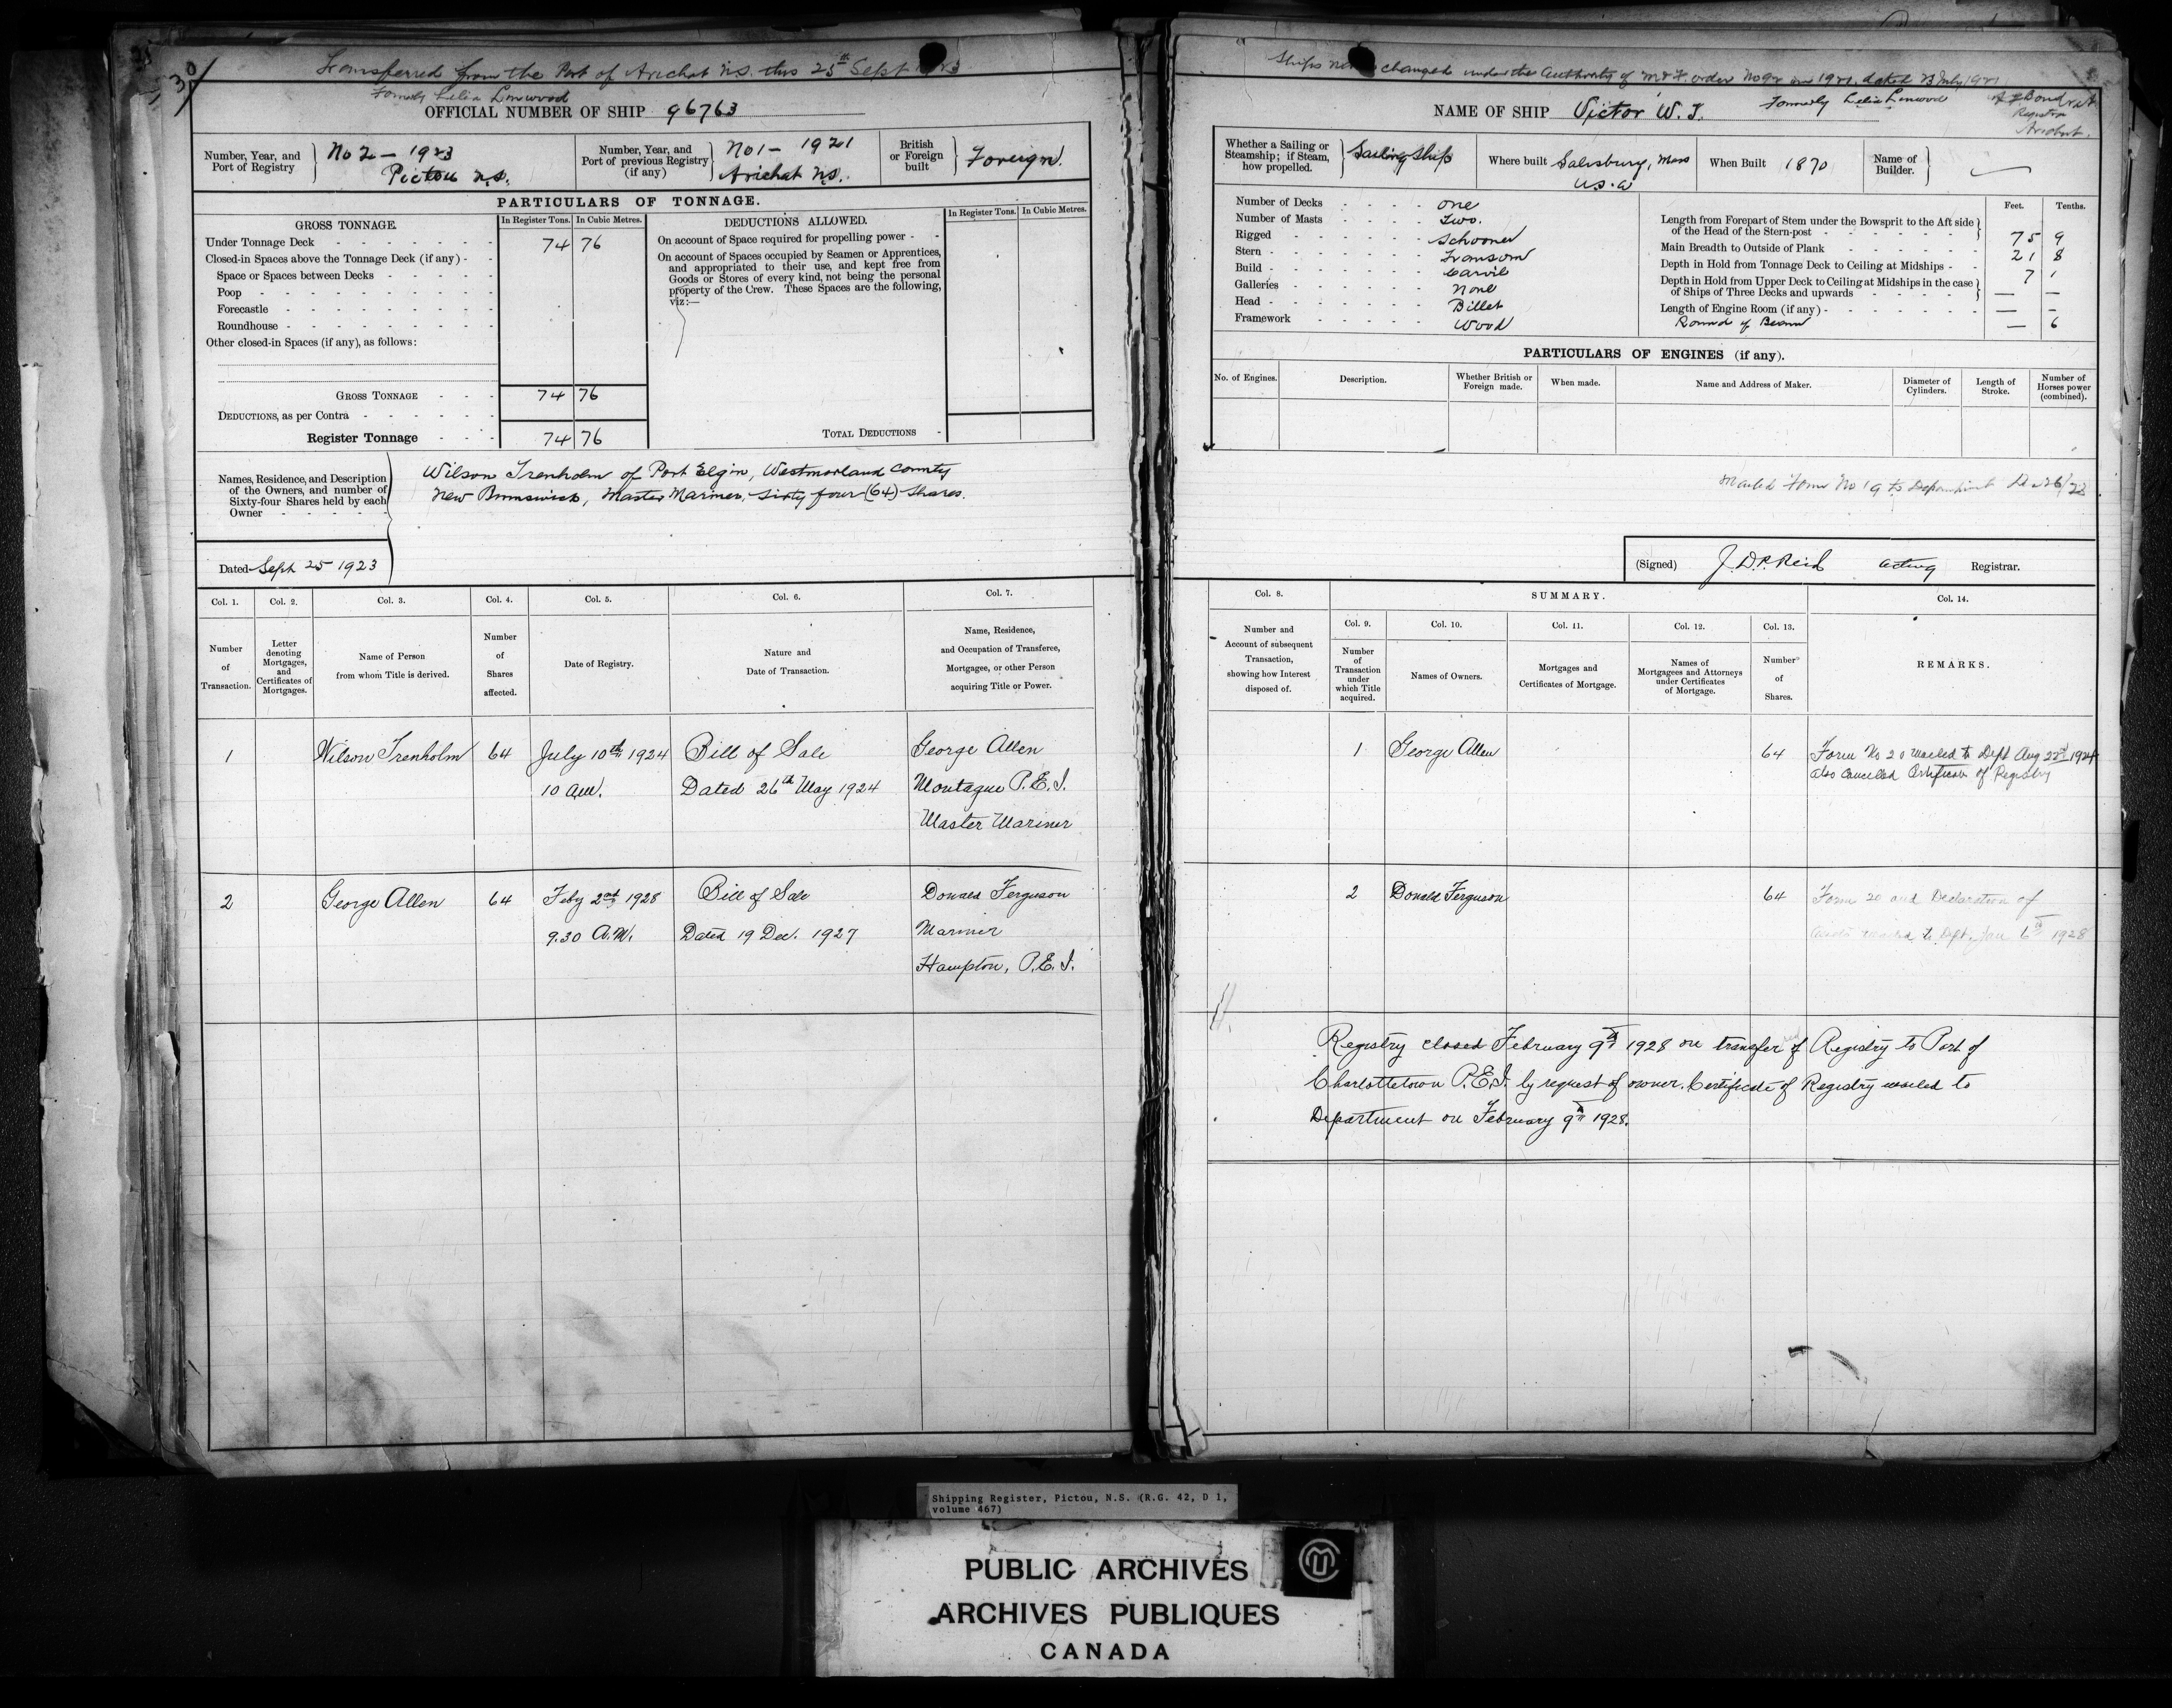 30
Transferred from the Port of Arichat N.S. this 25th Sept 1923
Formerly Lelia Linwood
OFFICIAL NUMBER OF SHIP 96763
Number, Year, and Port of Registry } No 2 - 1923 Pictou N.S.
Number, Year, and Port of previous Registry (if any) } No 1 - 1921 Arichat N.S.
British or Foreign built } Foreign.
PARTICULARS OF TONNAGE.
GROSS TONNAGE. In Register Tons. In Cubic Metres.
Under Tonnage Deck 74 76
Closed-in Spaces above the Tonnage Deck (if any)
Space or Spaces between Decks
Poop
Forecastle
Roundhouse
Other closed-in Spaces (if any), as follows:
GROSS TONNAGE 74 76
DEDUCTIONS, as per Contra
Register Tonnage 74 76
DEDUCTIONS ALLOWED. In Register Tons. In Cubic Metres.
On account of Space required for propelling power
On account of Spaces occupied by Seamen or Apprentices,
and appropriated to their use, and kept free from
Goods or Stores of every kind, not being the personal
property of the Crew. These Spaces are the following,
viz:—
TOTAL DEDUCTIONS
Names, Residence, and Description
of the Owners, and number of
Sixty-four Shares held by each
Owner
Wilson Trenholm of Port Elgin, Westmorland County
New Brunswick, Master Mariner, Sixty four (64) Shares.
Dated Sept 25 1923
Col. 1. Col. 2. Col. 3. Col. 4. Col. 5. Col. 6. Col. 7.
Number of Transaction.
Letter denoting Mortgages, and Certificates of Mortgages.
Name of Person from whom Title is derived.
Number of Shares affected.
Date of Registry.
Nature and Date of Transaction.
Name, Residence, and Occupation of Transferee, Mortgagee, or other Person acquiring Title or Power.
1 Wilson Trenholm 64 July 10th 1924 Bill of Sale George Allen
10 a.m. Dated 26th May 1924 Montague P.E.I.
Master Mariner
2 George Allen 64 Feby 2nd 1928 Bill of Sale Donald Ferguson
9.30 A.M. Dated 19 Dec. 1927 Mariner
Hampton, P.E.I.
Ships name changed under the Authority of M & F order No 92 in 1921, dated 23 July, 1921
Registrar
Arichat.
NAME OF SHIP Victor W. T. Formerly Lelia Linwood
Whether a Sailing or Steamship; if Steam, how propelled. } Sailing Ship
Where built Salisbury, Mass U.S.A
When Built 1870
Name of Builder. }
Number of Decks one
Number of Masts Two.
Rigged Schooner
Stern Transom
Build Carvel
Galleries None
Head Billet
Framework Wood
Feet. Tenths.
Length from Forepart of Stem under the Bowsprit to the Aft side of the Head of the Stern-post 75 9
Main Breadth to Outside of Plank 21 8
Depth in Hold from Tonnage Deck to Ceiling at Midships 7 1
Depth in Hold from Upper Deck to Ceiling at Midships in the case of Ships of Three Decks and upwards — —
Length of Engine Room (if any) — —
Round of Beam — 6
PARTICULARS OF ENGINES (if any).
No. of Engines. Description. Whether British or Foreign made. When made. Name and Address of Maker. Diameter of Cylinders. Length of Stroke. Number of Horses power (combined).
Mailed Form No 19 to Department
(Signed) J. D. P. Reid acting Registrar.
Col. 8. SUMMARY. Col. 14.
Col. 9. Col. 10. Col. 11. Col. 12. Col. 13.
Number and Account of subsequent Transaction, showing how Interest disposed of.
Number of Transaction under which Title acquired.
Names of Owners.
Mortgages and Certificates of Mortgage.
Names of Mortgagees and Attorneys under Certificates of Mortgage.
Number of Shares.
REMARKS.
1 George Allen 64 Form No 20 mailed to Dept Aug 22nd 1924
also cancelled Certificate of Registry
2 Donald Ferguson 64 Form 20 and Declaration of
mailed to Dept. Jan 6th 1928
Registry closed February 9th 1928 on transfer of Registry to Port of
Charlottetown P.E.I. by request of owner. Certificate of Registry mailed to
Department on February 9th 1928.
Shipping Register, Pictou, N.S. (R.G. 42, D 1,
volume 467)
PUBLIC ARCHIVES
ARCHIVES PUBLIQUES
CANADA